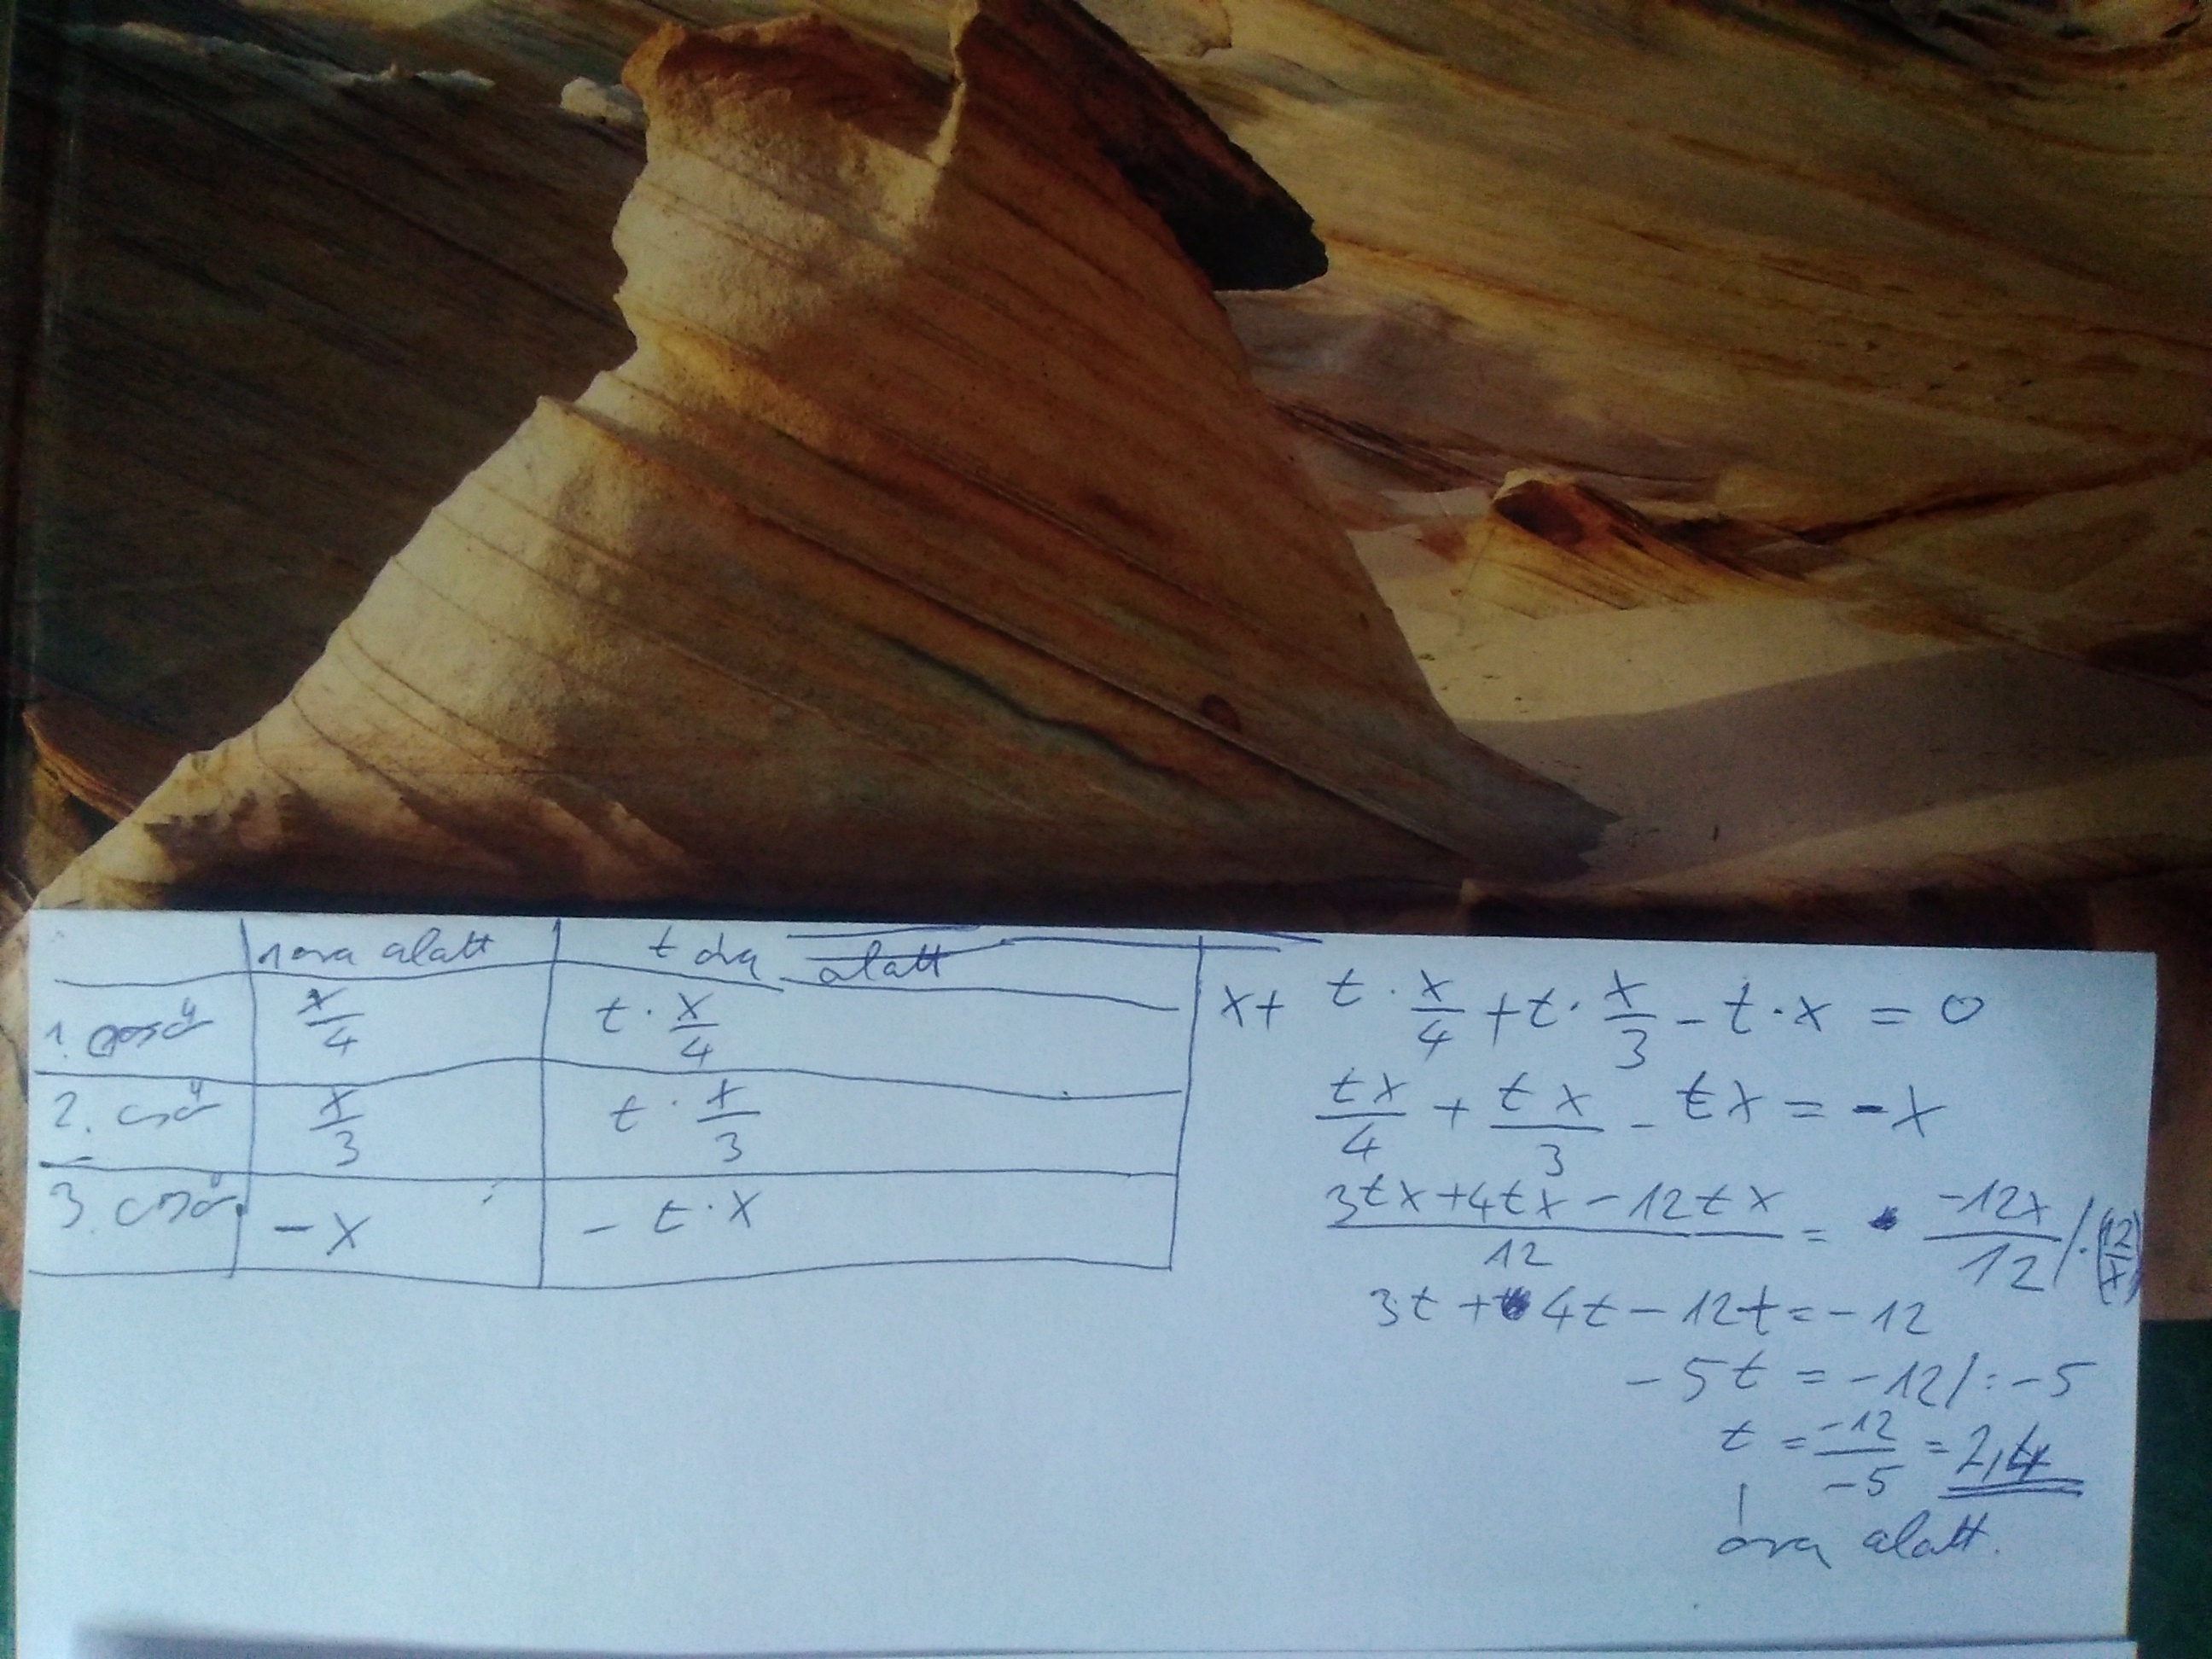 1 óra alatt t óra alatt
1. cső x/4 t · x/4
2. cső x/3 t · x/3
3. cső - x - t · x
x + t · x/4 + t · x/3 - t · x = 0
tx/4 + tx/3 - tx = -x
(3tx + 4tx - 12tx)/12 = -12x/12 / · (12/x)
3t + 4t - 12t = -12
-5t = -12 / : -5
t = -12/-5 = 2,4
óra alatt.